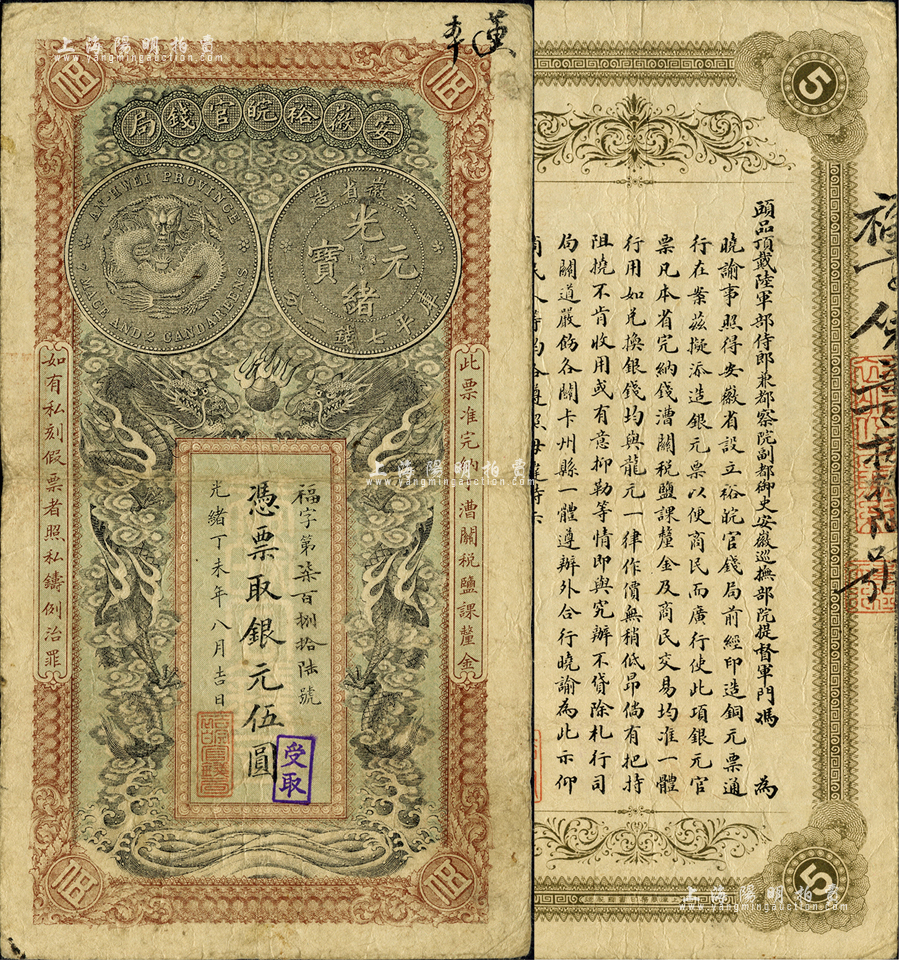 上海陽明拍賣
www.yangmingauction.com
漢
李
伍
伍
安徽裕皖官錢局
AN-HWEI PROVINCE
7 MACE AND 2 CANDAREENS
安徽省造
光緒元寶
庫平七錢二分
此票准完納漕關税鹽課釐金
如有私刻假票者照私鑄例治罪
福字第柒百捌拾陸號
憑票取銀元伍圓
光緒丁未年八月吉日
受取
伍
伍
上海陽明拍賣
www.yangmingauction.com
5
頭品頂戴陸軍部侍郎兼都察院副都御史安徽巡撫部院提督軍門馮 為
曉諭事照得安徽省設立裕皖官錢局前經印造銅元票通
行在案茲擬添造銀元票以便商民而廣行使此項銀元官
票凡本省完納錢漕關税鹽課釐金及商民交易均准一體
行用如兌換銀錢均與龍元一律作價無稍低昂倘有把持
阻撓不肯收用或有意抑勒等情即與究辦不貸除札行司
局關道嚴飭各關卡州縣一體遵辦外合行曉諭為此示仰
5
上海陽明拍賣
www.yangmingauction.com